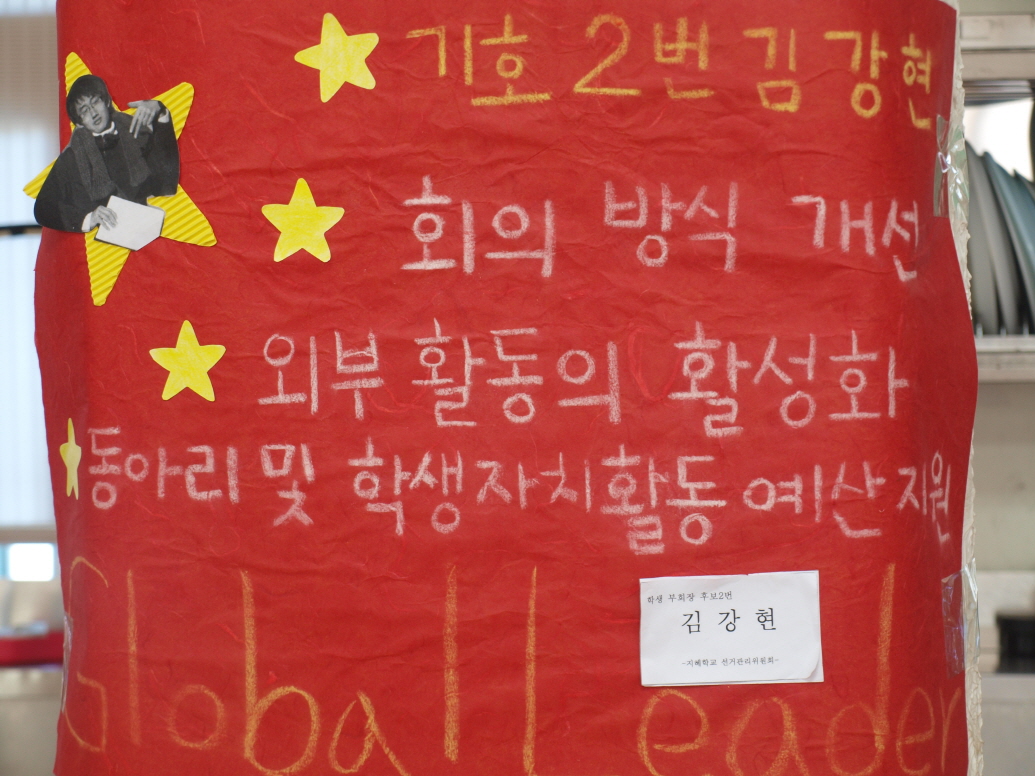 기호 2번 김강현
회의 방식 개선
외부 활동의 활성화
동아리 및 학생자치활동 예산 지원
Global Leader
학생 부회장 후보2번
김 강 현
-지혜학교 선거관리위원회-